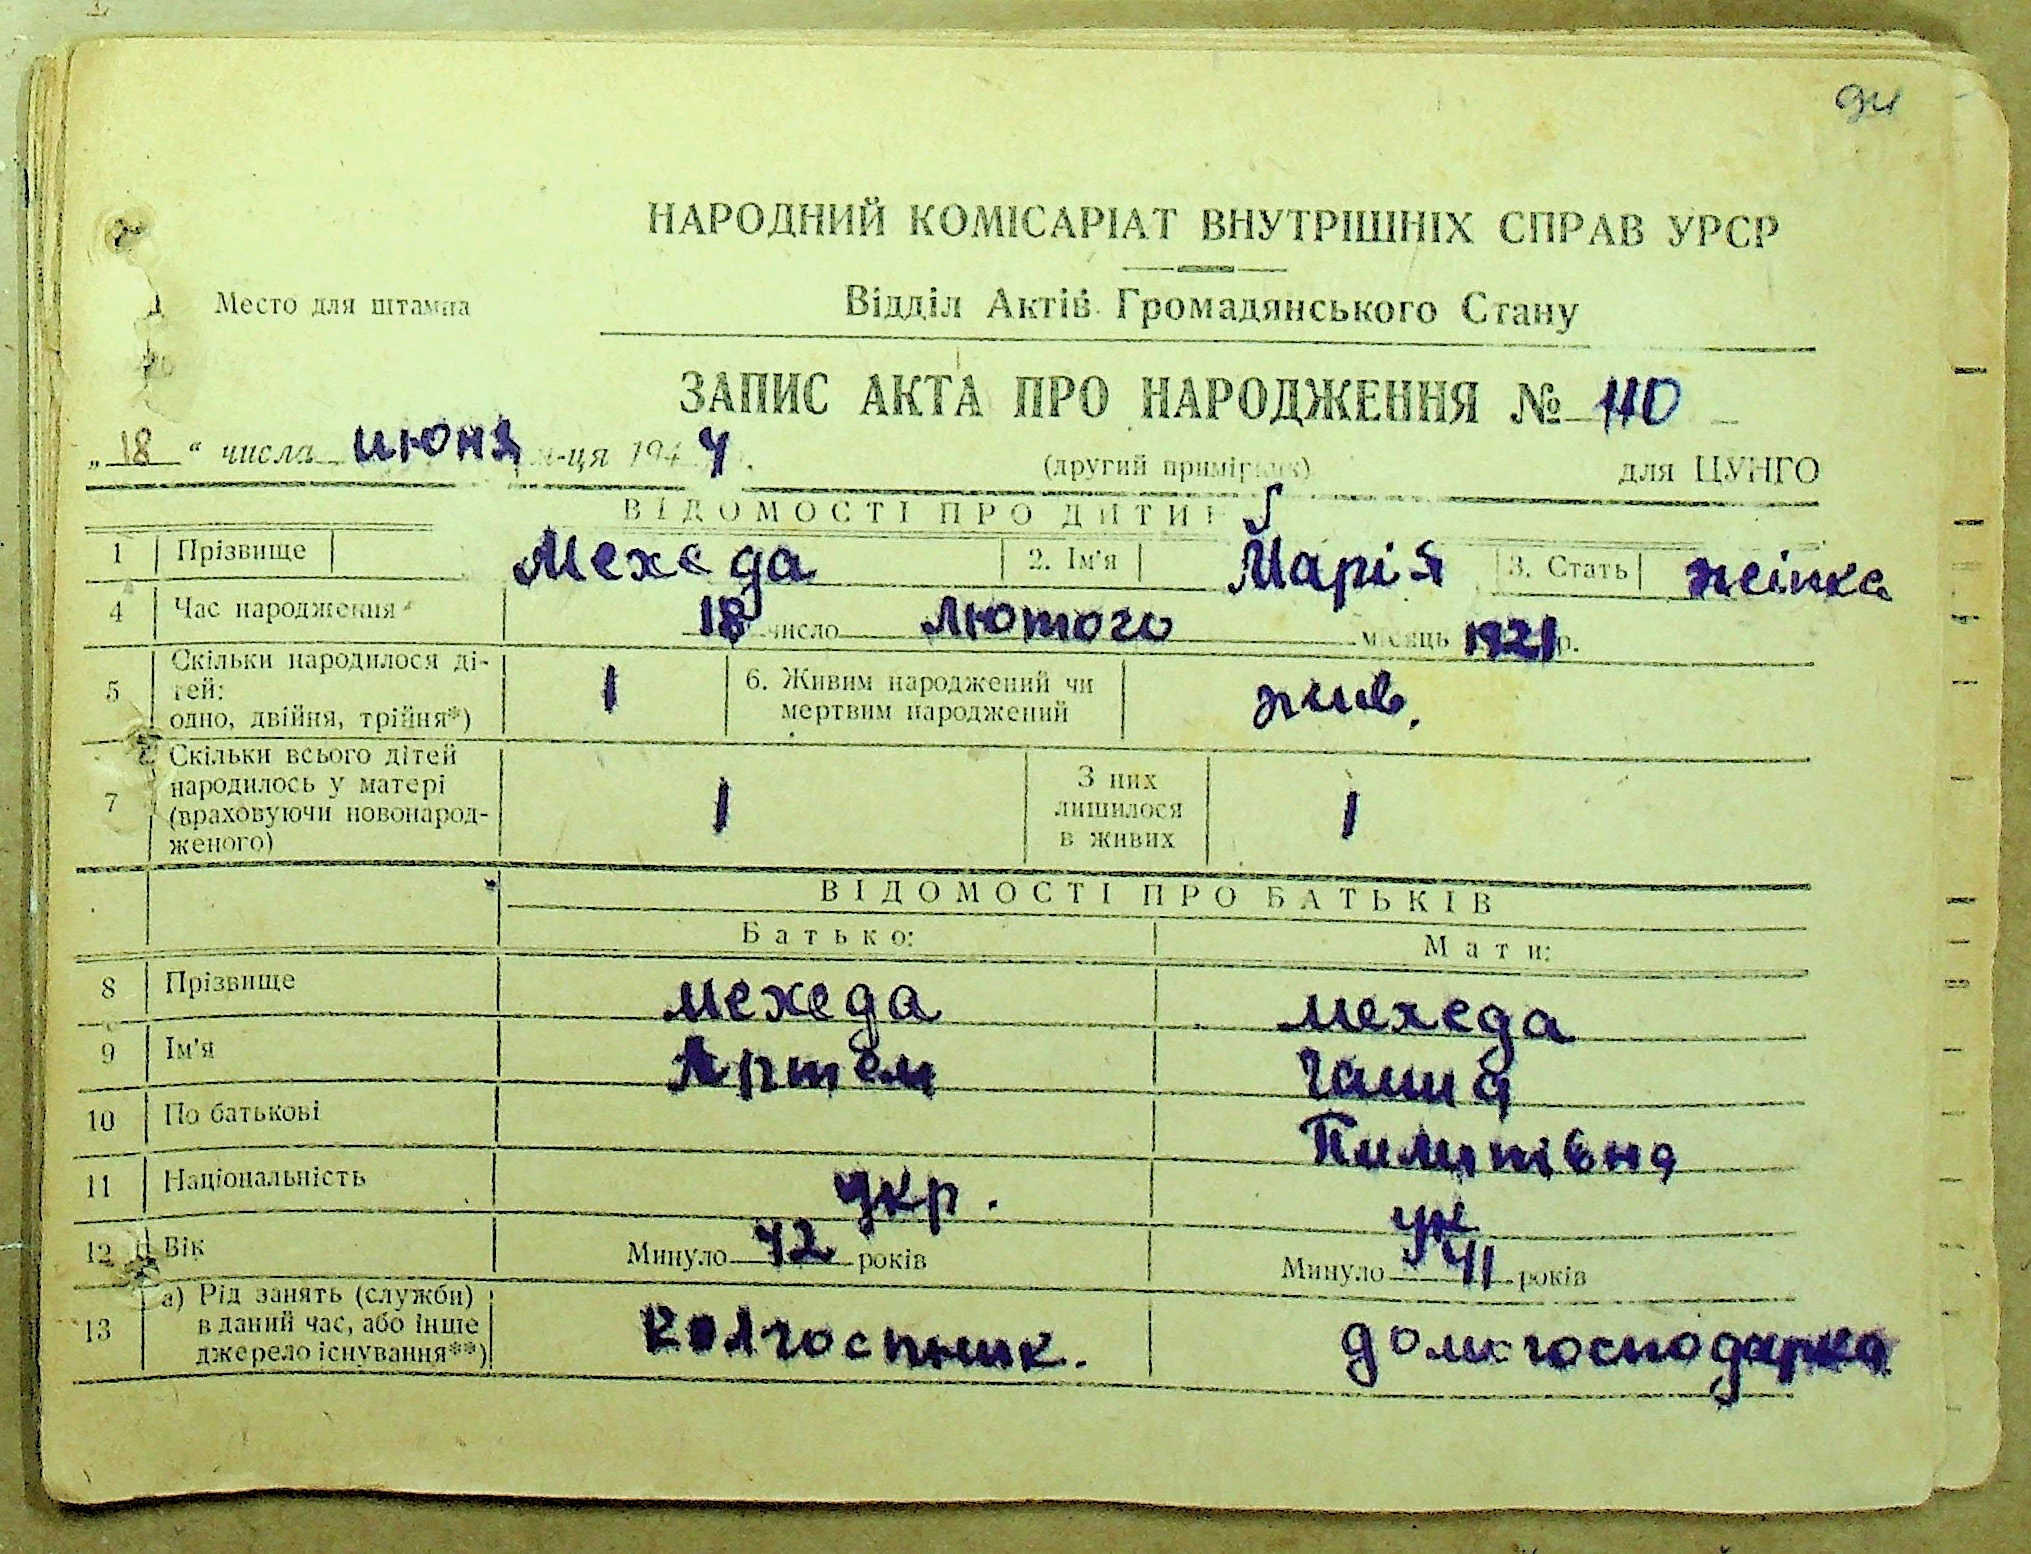 94
НАРОДНИЙ КОМІСАРІАТ ВНУТРІШНІХ СПРАВ УРСР
Место для штампа
Відділ Актів Громадянського Стану
ЗАПИС АКТА ПРО НАРОДЖЕННЯ № 110
„18“ числа июня м-ця 1944.
(другий примірник) для ЦУНГО
ВІДОМОСТІ ПРО ДИТИН
1 Прізвище Мехеда 2. Ім'я Марія 3. Стать жінка
4 Час народження 18 число лютого місяць 1921 р.
5 Скільки народилося ді-
тей:
одно, двійня, трійня*) 1 6. Живим народжений чи
мертвим народжений жив.
7 Скільки всього дітей
народилось у матері
(враховуючи новонарод-
женого) 1 З них
лишилося
в живих 1
ВІДОМОСТІ ПРО БАТЬКІВ
Батько: Мати:
8 Прізвище мехеда мехеда
9 Ім'я Артем Ганна
10 По батькові Пилипівна
11 Національність укр. ук
12 Вік Минуло 42 років Минуло 41 років
13 а) Рід занять (служби)
в даний час, або інше
джерело існування**) колгоспник. домогосподарка